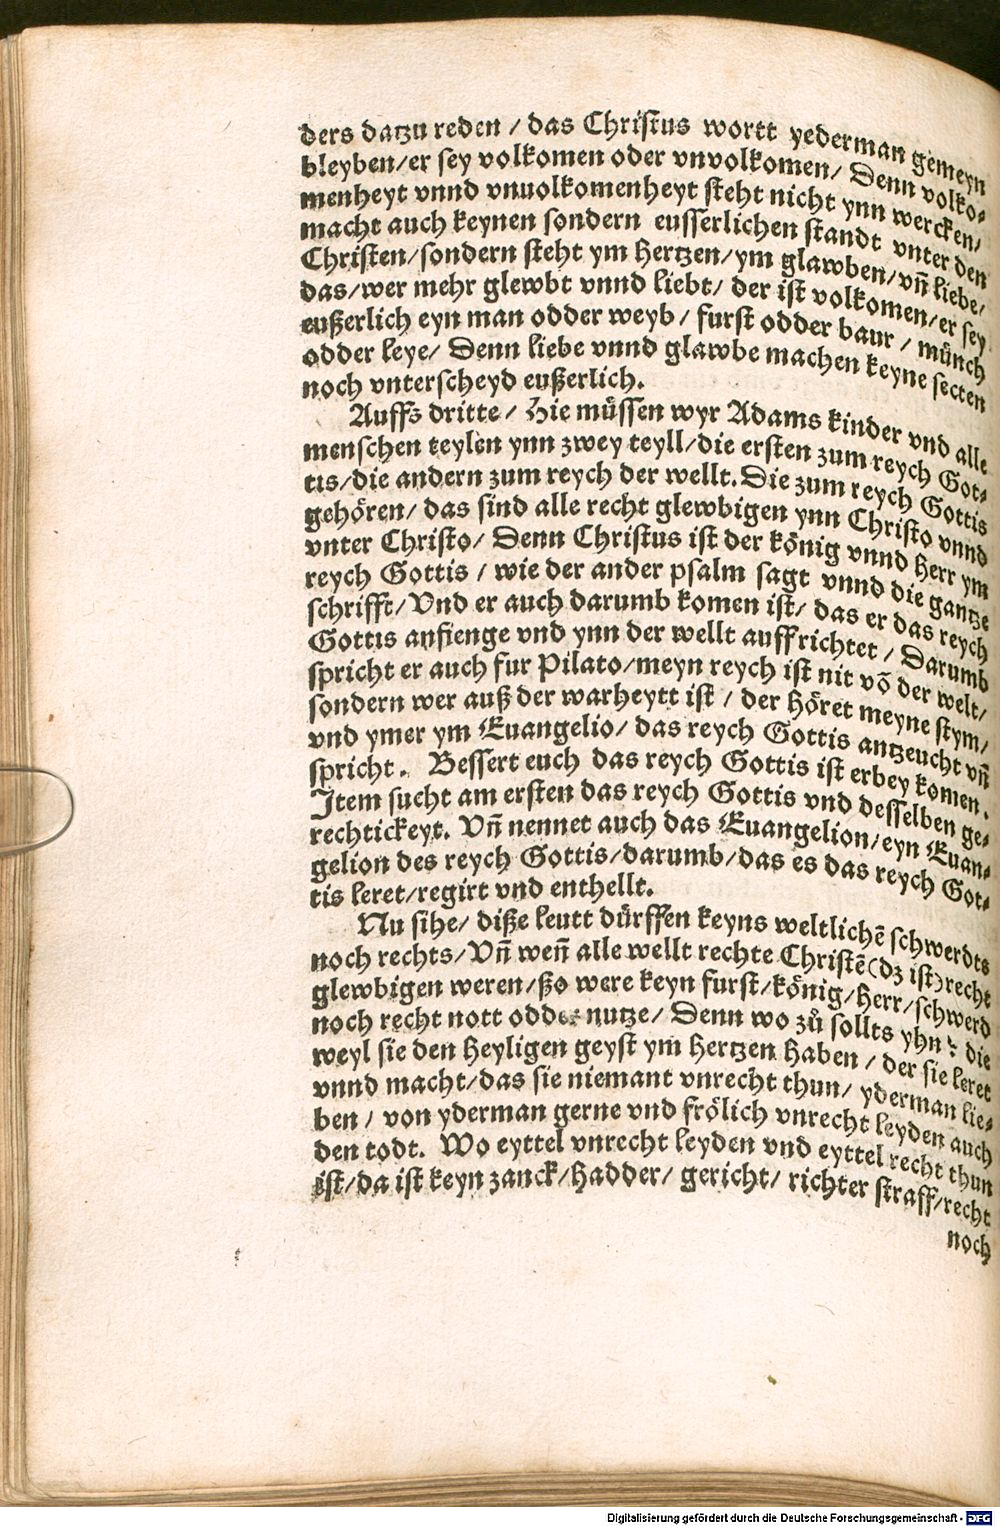 ders datzu reden / das Christus wortt yederman gemeyn
bleyben/er sey volkomen oder vnvolkomen/ Denn volko⸗
menheyt vnnd vnuolkomenheyt steht nicht ynn wercken/
macht auch keynen sondern eusserlichen standt vnter den
Christen/sondern steht ym hertzen/ym glawben/vn̄ liebe/
das/wer mehr glewbt vnnd liebt/ der ist volkomen/er sey
eußerlich eyn man odder weyb/ furst odder baur / münch
odder leye/ Denn liebe vnnd glawbe machen keyne secten
noch vnterscheyd eußerlich.
Auffs dritte/ Hie müssen wyr Adams kinder vnd alle
menschen teylen ynn zwey teyll/die ersten zum reych Got⸗
tis/die andern zum reych der wellt. Die zum reych Gottis
gehören/ das sind alle recht glewbigen ynn Christo vnnd
vnter Christo/ Denn Christus ist der könig vnnd herr ym
reych Gottis / wie der ander psalm sagt vnnd die gantze
schrifft/ Vnd er auch darumb komen ist/ das er das reych
Gottis anfienge vnd ynn der wellt auffrichtet / Darumb
spricht er auch fur Pilato/meyn reych ist nit vō der welt/
sondern wer auß der warheytt ist / der höret meyne stym/
vnd ymer ym Euangelio/ das reych Gottis antzeucht vn̄
spricht. Bessert euch das reych Gottis ist erbey komen.
Item sucht am ersten das reych Gottis vnd desselben ge⸗
rechtickeyt. Vn̄ nennet auch das Euangelion/eyn Euan⸗
gelion des reych Gottis/darumb/das es das reych Got⸗
tis leret/regirt vnd enthellt.
Nu sihe/ diße leutt dürffen keyns weltlichē schwerdts
noch rechts/ Vn̄ wen̄ alle wellt rechte Christē(dz ist)recht
glewbigen weren/ßo were keyn furst/könig/herr/schwerd
noch recht nott odder nutze/ Denn wo zů sollts yhn? die
weyl sie den heyligen geyst ym hertzen haben / der sie leret
vnnd macht/das sie niemant vnrecht thun/ yderman lie⸗
ben / von yderman gerne vnd frölich vnrecht leyden auch
den todt. Wo eyttel vnrecht leyden vnd eyttel recht thun
ist/da ist keyn zanck/hadder/ gericht/ richter straff/recht
noch
Digitalisierung gefördert durch die Deutsche Forschungsgemeinschaft - DFG